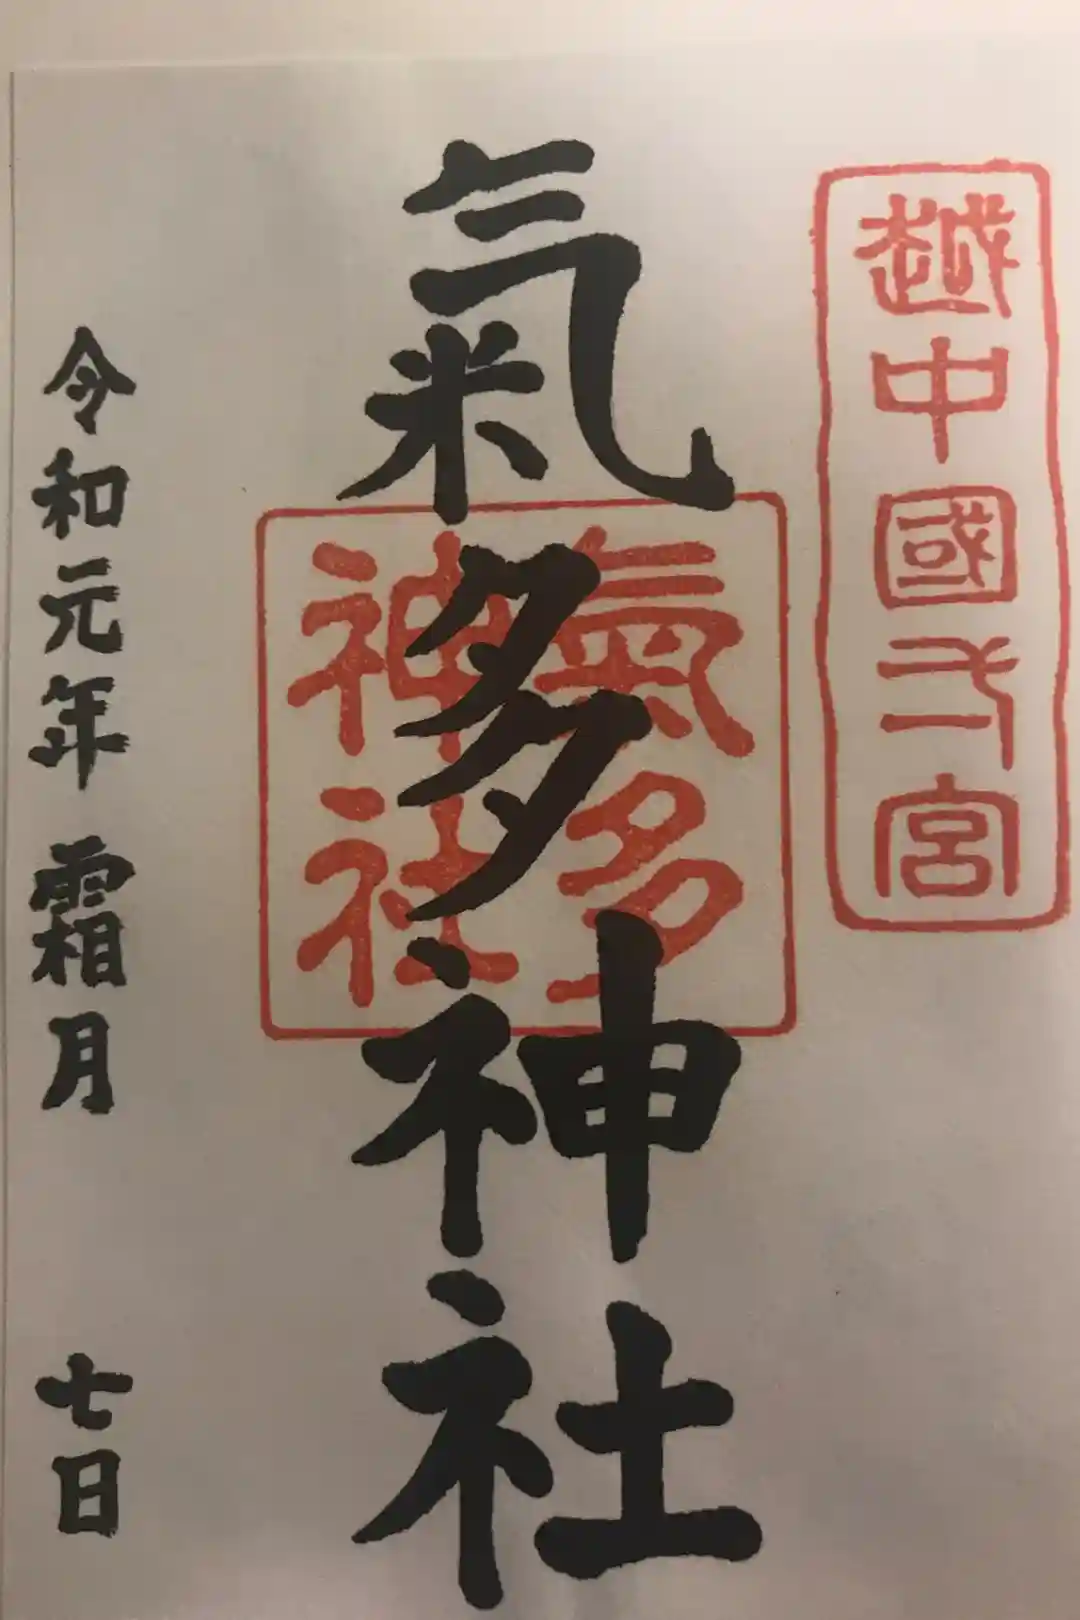 越中國一宮
氣多神社
氣多
神社
令和元年 霜月 七日